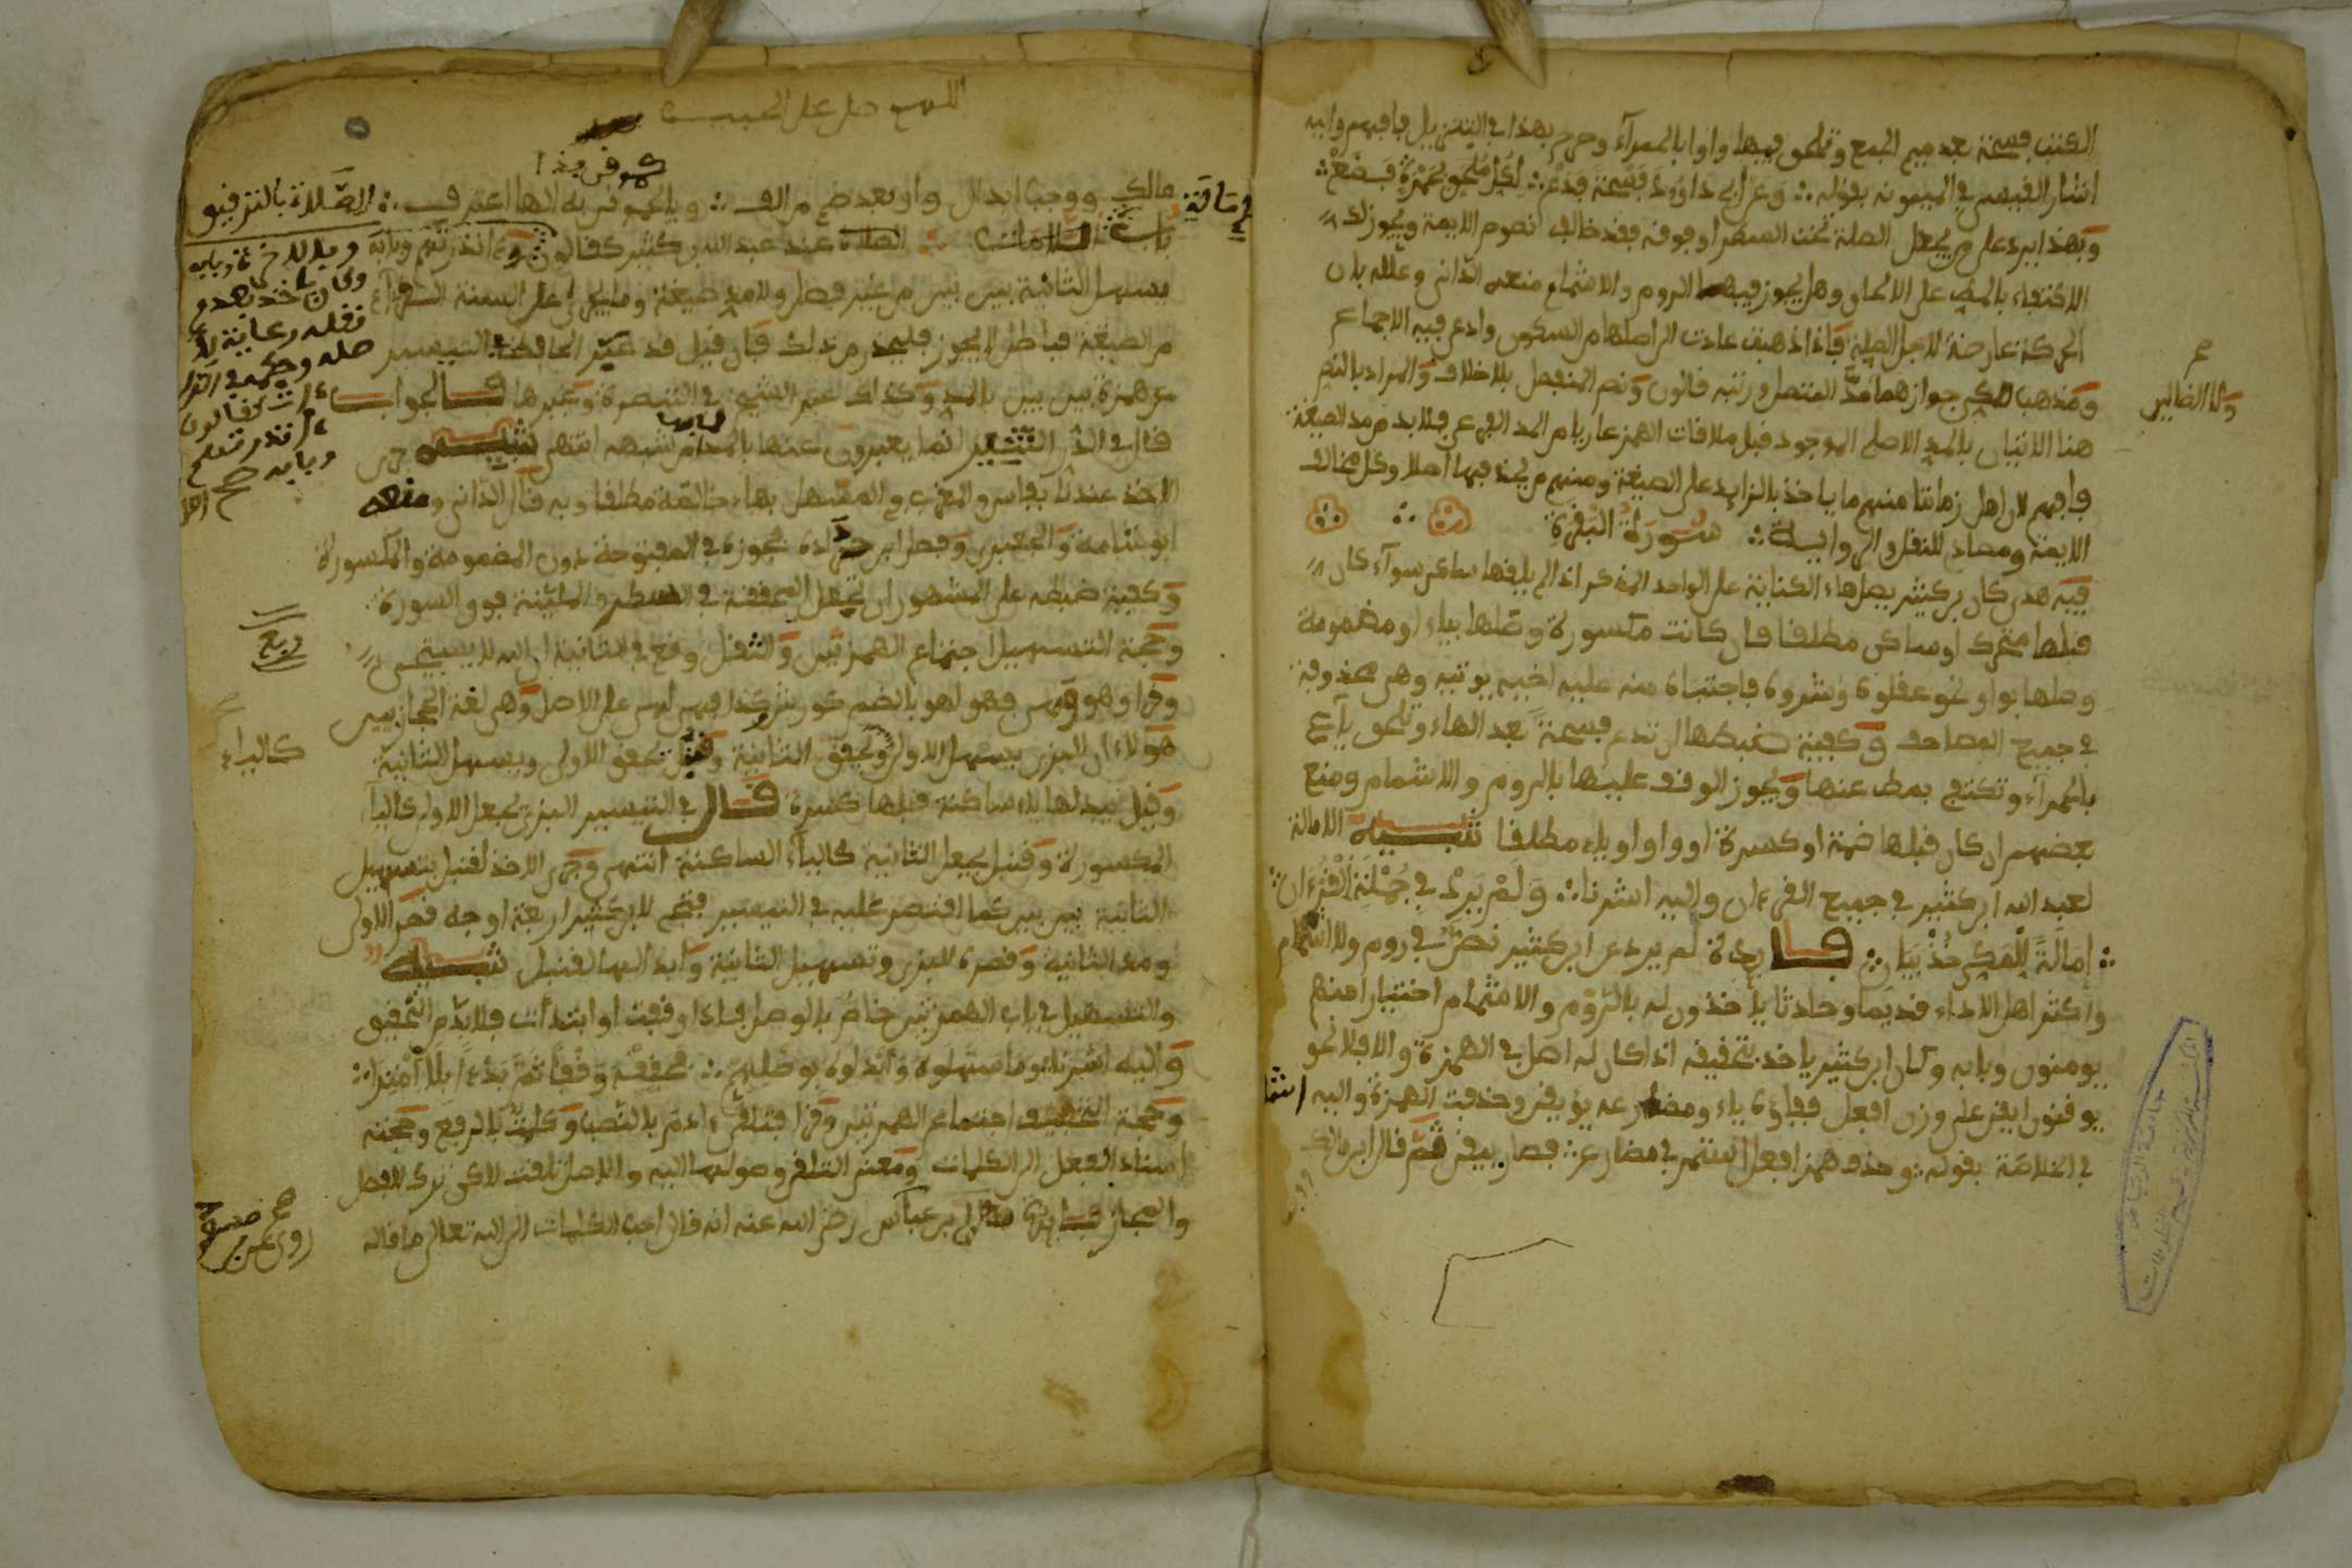 الكتب فسحة بعد ميم الجمع وتلحق فيها واوا بالحمراء وصرح بهذا في التنزيل فافهم واليه
اشار القيسي في الميمونه بقوله ∴ وعن أبي داوود فسحة فدع ∴ لكل ملحق بحمرة فضع ∴
وبهذا يرد على من يجعل الصلة تحت السطر او فوقه فقد خالف نصوص الايمة ويجوز لك
الاكتفاء بالمط على الالحاق وهل يجوز فيها الروم والاشمام منعه الداني وعلله بان
الحركة عارضة لاجل الصلة فاذا ذهبت عادت الى اصلها من السكون وادعى فيه الاجماع
ومذهب المكي جوازهما مد المتصل ورتبه قالون وقصر المنفصل بلا خلاف والمراد بالقصر
هنا الاتيان بالمد الاصلي الموجود قبل ملاقات الهمز عاريا من المد الفرعي فلابد من مد الصيغة
فافهم لان اهل زماننا منهم ما ياخذ بالزايد على الصيغة ومنهم من يحذفها اصلا وكل مخالف
الايمة ومصادم للنقل والرواية ∴ سورة البقرة
فيه هدى كان بن كثير يصل هاء الكناية على الواحد المذكر اذا لم يلقها ساكن سوآء كان
قبلها متحرك او ساكن مطلقا فان كانت مكسورة وصلها بياء او مضمومة
وصلها بواو نحو عقلوه وشروه فاجتباه منه عليه اخيه يوتيه وهي محذوفة
في جميع المصاحف وكيفية ضبطها ان تدع فسحة بعد الهاء وتلحق يآء
بالحمرآء وتكتفي بمط عنها ويجوز الوقف عليها بالروم والاشمام ومنع
بعضهم ان كان قبلها ضمة او كسرة او واو او ياء مطلقا تنبيه الامالة
لعبد الله ابن كثير في جميع القرءان واليه اشرنا ∴ ولم يرد في جملة القرءان
∴ إمالة للمكي خذ بيان ∴ فايدة لم يرد عن ابن كثير نص في روم ولا اشمام
واكثر اهل الاداء قديما وحادثا ياخذون له بالروم والاشمام اختيارا منهم
يومنون وبابه وكان ابن كثير ياخذ بتحقيقه اذا كان له اصل في الهمزة والا فلا نحو
يوقنون ايقن على وزن افعل ففاؤه ياء ومضارعه يؤيقن وحذفت الهمزة واليه اشا
في الخلاصة بقوله ∴ وحذف همز افعل استمر في مضارع ∴ فصار ييقن ثم قال ابن مالك
ولا الضالين
اللهم صل على الحبيب
كموقن بذا
مالك ووجب ابدال واو بعد ضم من الف ∴ ويا كموقن بذا لها اعترف ∴ الصلاة بالترقيق
باب اللامات ∴ الصلاة عند عبد الله بن كثير كقالون ء انذرتهم وبابه
يسهل الثانية بين بين من غير فصل ولا مد صيغة وما يجري على السنة القرآء
من الصيغة فباطل لا يجوز فليحذر من ذلك فان قيل قد عبر الحافظ في التيسير
عن همزة بين بين بالمد وكذلك عبر الشيخ في التبصرة وغيرها فالجواب
قال في الدر النثير انما يعبرون عنها بالمد لما بها من شبهه انتهى تنبيه جرى
الاخذ عندنا بفاس والمغرب في المسهل بهاء خالصة مطلقا وبه قال الداني ومنعه
ابو شامة والجعبري وفصل ابن حدادة فجوزه في المفتوحة دون المضمومة والمكسورة
وكيفية ضبطه على المشهور ان تجعل المحققة في السطر والملينة فوق السورة
وحجة التسهيل اجتماع الهمزتين والثقل وقع في الثانية ان الله لا يستحيي
وقرا وهو وهي فهو لهو بالضم
هؤلاء ان البزي يسهل الاولى ويحقق الثانية وقنبل يحقق الاولى ويسهل الثانية
وقيل يبدلها ياء ساكنة قبلها كسرة قال في التيسير البزي يجعل الاولى كاليآء
المكسورة وقنبل يجعل الثانية كاليآء الساكنة انتهى وجرى الاخذ لقنبل بتسهيل
الثانية بين بين كما اقتصر عليه في التيسير فتحصل لابن كثير اربعة اوجه قصر الاولى
ومد الثانية وقصره للبزي وتسهيل الثانية وابدالها لقنبل تنبيه
والتسهيل في باب الهمزتين خاص بالوصل فاذا وقفت او ابتدأت فلابد من التحقيق
واليه اشرنا ∴ وما سهلوه وابدلوه بوصلهم ∴ فحققه وقفا ثم بدءا بلا امترا ∴
وحجة التخفيف اجتماع الهمزتين وقرا فتلقى ءادم بالنصب وكلمت بالرفع وحجته
اسناد الفعل الى الكلمات ومعنى التلقي وصولها اليه والاصل تلقت لاكن ترك للفصل
والمجاز فايدة بن عباس رضي الله عنه انه قال احب الكلمات الى الله تعالى ما قاله
ربع
كالياء
روي عن